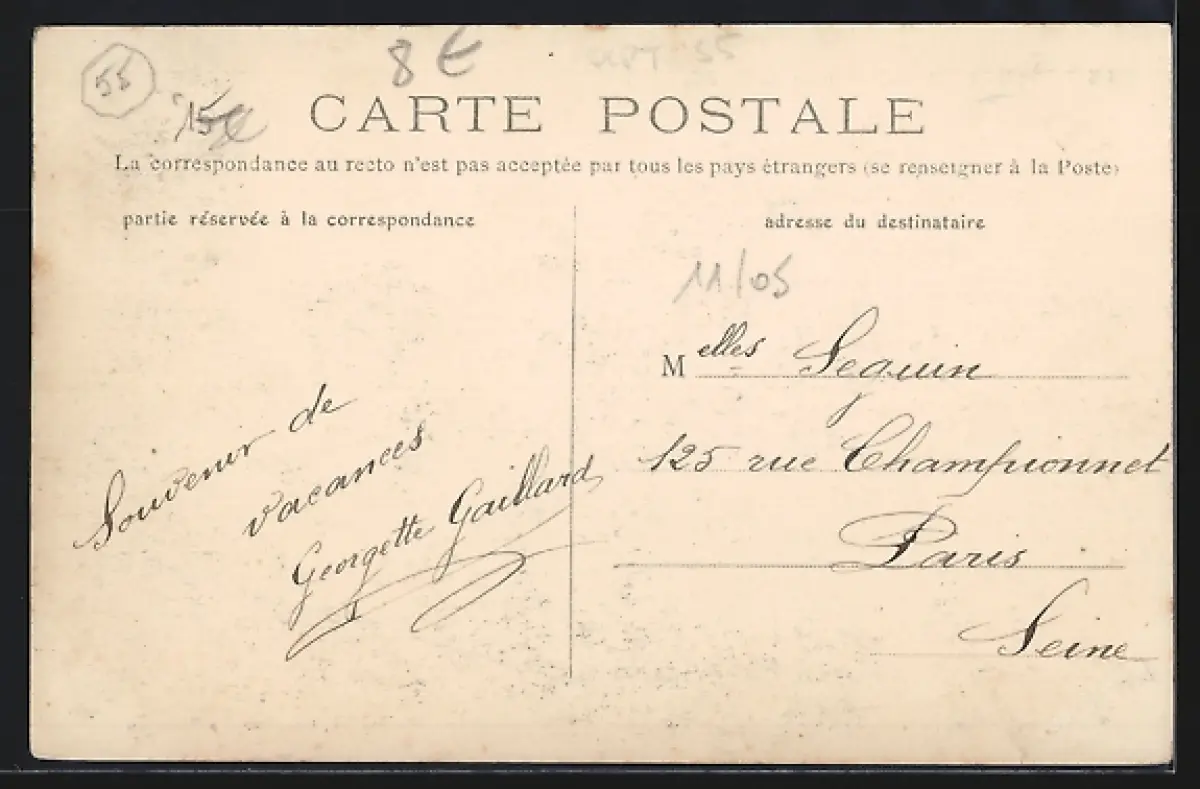 55
8 €
15€
CARTE POSTALE
La correspondance au recto n'est pas acceptée par tous les pays étrangers (se renseigner à la Poste)
partie réservée à la correspondance
Souvenir de
vacances
Georgette Gaillard
adresse du destinataire
11/05
Melles Seguin
125 rue Championnet
Paris
Seine